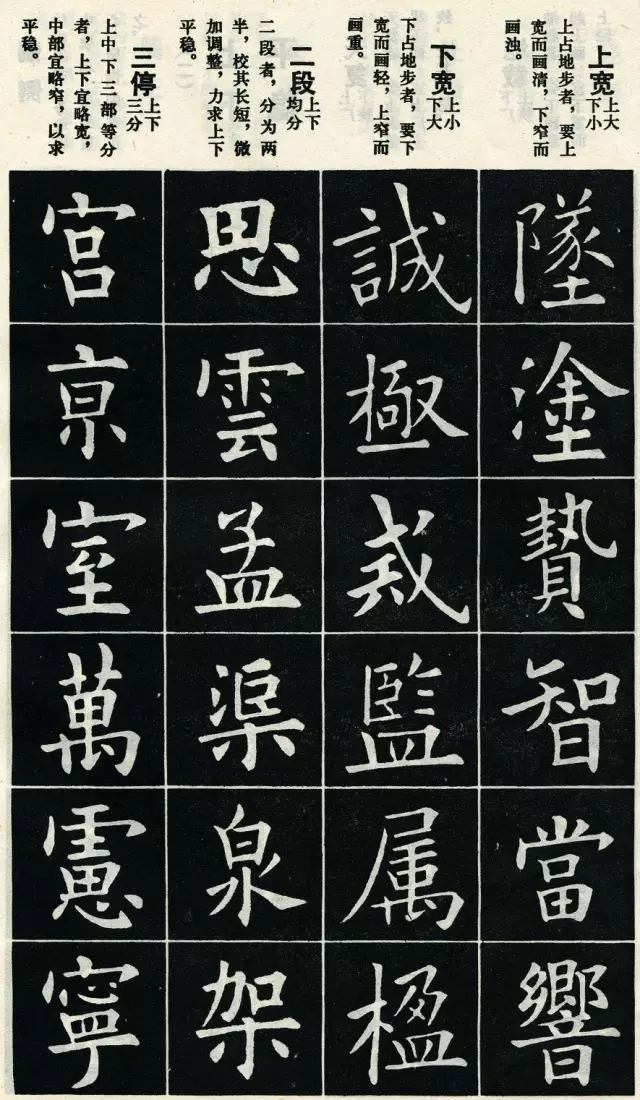 上宽 上大
下小
上占地步者，要上
宽而画清，下窄而
画浊。
墜
塗
贄
智
當
響
下宽 上小
下大
下占地步者，要下
宽而画轻，上窄而
画重。
誠
極
監
属
楹
二段 上下
均分
二段者，分为两
半，校其长短，微
加调整，力求上下
平稳。
思
雲
孟
渠
泉
架
三停 上下
三分
上中下三部等分
者，上下宜略宽，
中部宜略窄，以求
平稳。
宮
亰
室
萬
慮
寧